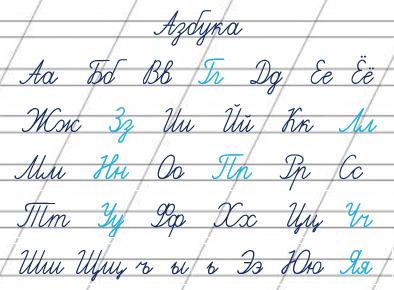 Азбука
Аа Бб Вв Гг Дд Ее Ёё
Жж Зз Ии Йй Кк Лл
Мм Нн Оо Пп Рр Сс
Тт Уу Фф Хх Цц Чч
Шш Щщ ъ ы ь Ээ Юю Яя